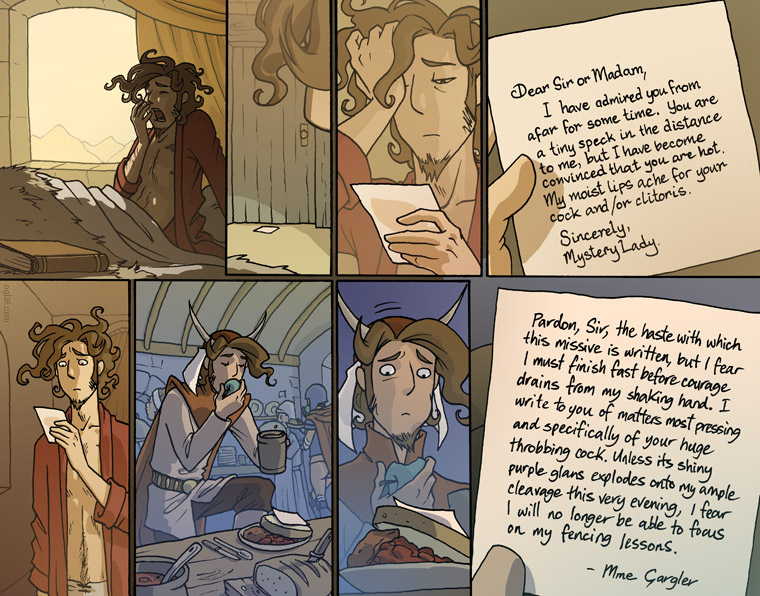 Dear Sir or Madam,
I have admired you from
afar for some time. You are
a tiny speck in the distance
to me, but I have become
convinced that you are hot.
My moist lips ache for your
cock and/or clitoris.
Sincerely,
Mystery Lady.
oglaf.com
Pardon, Sir, the haste with which
this missive is written, but I fear
I must finish fast before courage
drains from my shaking hand. I
write to you of matters most pressing
and specifically of your huge
throbbing cock. Unless its shiny
purple glans explodes onto my ample
cleavage this very evening, I fear
I will no longer be able to focus
on my fencing lessons.
- Mme Gargler